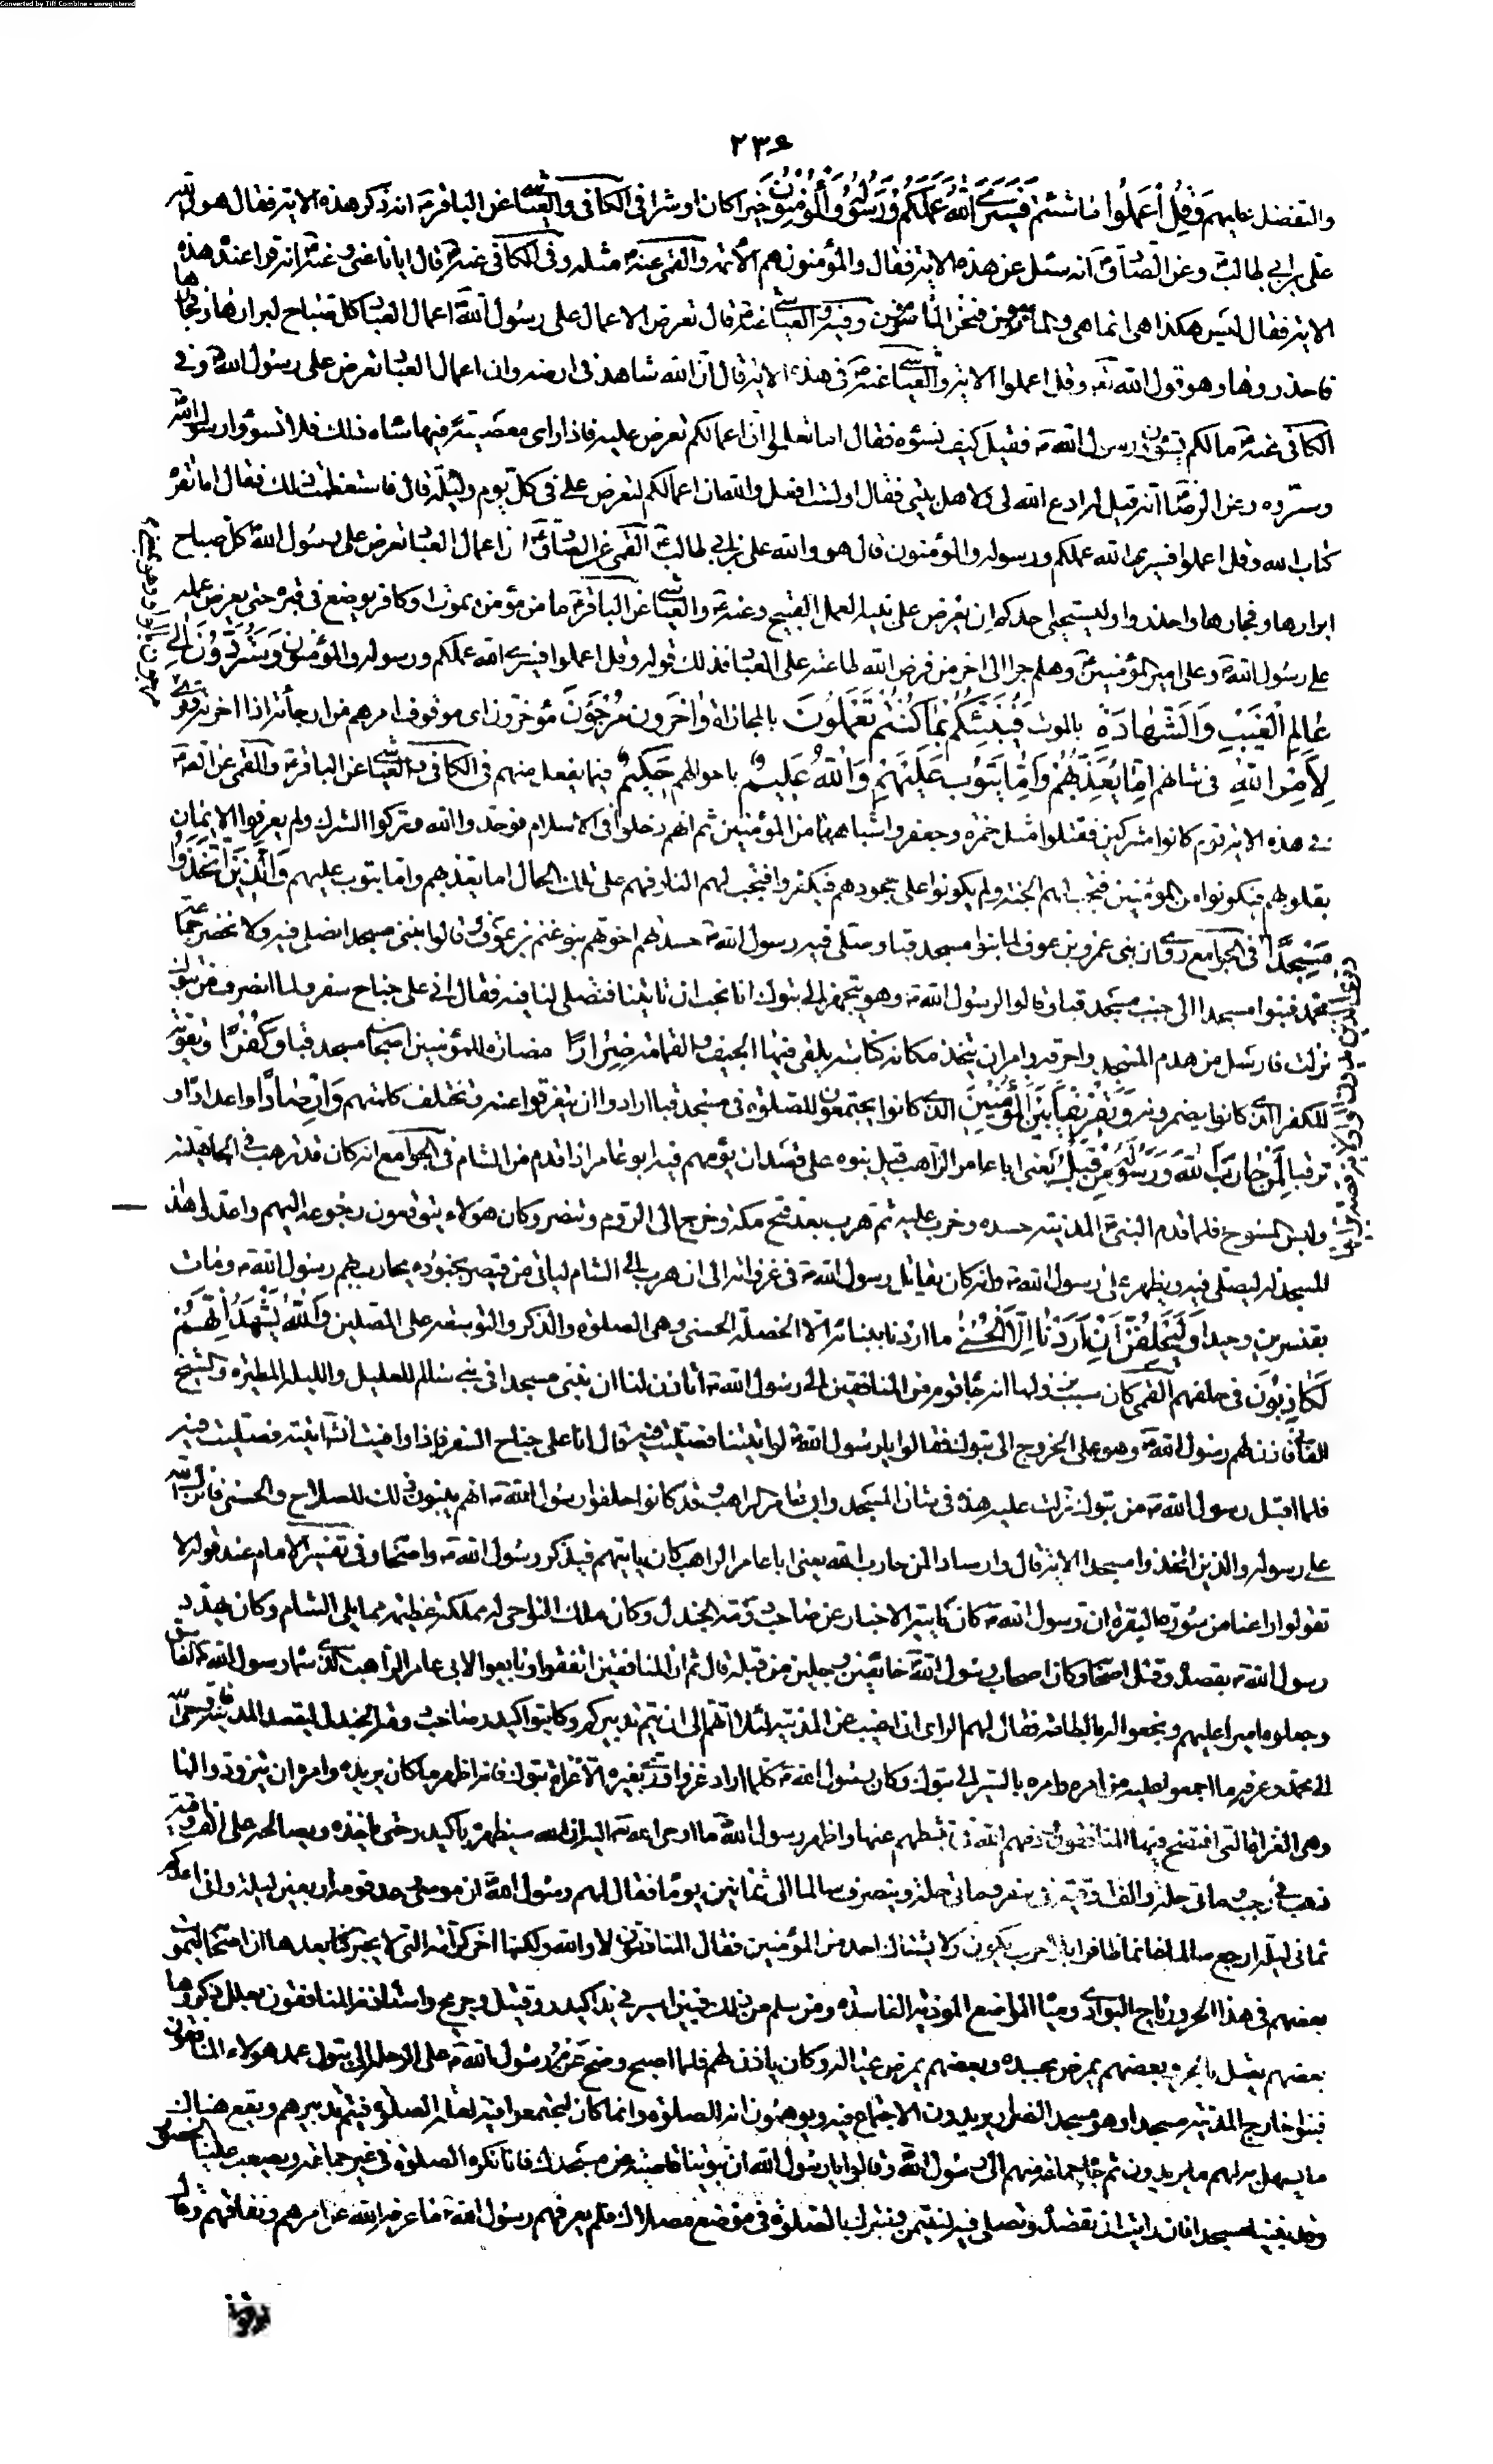 Converted by Tiff Combine - unregistered
٢٣٤
والتفضل عليهم وَقُلِ اعْمَلُوا ما شئتم فَسَيَرَى اللَّهُ عَمَلَكُمْ وَرَسُولُهُ وَالْمُؤْمِنُونَ خيرا كان او شرا فى الكافى والعياشى عن الباقر انه ذكر هذه الاية فقال هو والله
على بن ابى طالب وعن الصادق انه سئل عن هذه الاية فقال والمؤمنون هم الائمة والقمى عنه مثله وفى الكافى عنه قال ايانا عنى وعنه انه قرا عنده هذه
الاية فقال ليس هكذا هى انما هى والمأمونون فنحن المأمونون وفيه والعياشى عنه قال تعرض الاعمال على رسول الله اعمال العباد كل صباح ابرارها وفجارها
فاحذروها وهو قول الله تعالى وقل اعملوا الاية والعياشى عنه فى هذه الاية قال ان الله شاهد فى ارضه وان اعمال العباد تعرض على رسول الله وفى
الكافى عنه ما لكم تسوؤن رسول الله فقيل كيف نسوءه فقال اما تعلمون ان اعمالكم تعرض عليه فاذا راى معصية فيها ساءه ذلك فلا تسوؤا رسول الله
وسروه وعن الرضا انه قيل له ادع الله لى ولاهل بيتى فقال اولست افعل والله ان اعمالكم لتعرض على فى كل يوم وليلة قال فاستعظمت ذلك فقال اما تقرء
كتاب الله وقل اعملوا فسيرى الله عملكم ورسوله والمؤمنون قال هو والله على بن ابى طالب القمى عن الصادق ان اعمال العباد تعرض على رسول الله كل صباح
ابرارها وفجارها واحذروا وليستحيى احدكم ان يعرض على نبيه العمل القبيح وعنه والعياشى عن الباقر ما من مؤمن يموت وكافر يوضع فى قبره حتى يعرض عمله
على رسول الله وعلى امير المؤمنين وهلم جرا الى اخر من فرض الله طاعته على العباد فذلك قوله وقل اعملوا فسيرى الله عملكم ورسوله والمؤمنون وَسَتُرَدُّونَ إِلَى
عَالِمِ الْغَيْبِ وَالشَّهَادَةِ بالموت فَيُنَبِّئُكُمْ بِمَا كُنْتُمْ تَعْمَلُونَ بالمجازاة وَآخَرُونَ مُرْجَوْنَ مؤخرون اى موقوف امرهم من ارجأته اذا اخرته
لِأَمْرِ اللَّهِ فى شانهم إِمَّا يُعَذِّبُهُمْ وَإِمَّا يَتُوبُ عَلَيْهِمْ وَاللَّهُ عَلِيمٌ باحوالهم حَكِيمٌ فيما يفعل منهم فى الكافى والعياشى عن الباقر والقمى عن
فى هذه الاية قوم كانوا مشركين فقتلوا مثل حمزة وجعفر واشباههما من المؤمنين ثم انهم دخلوا فى الاسلام فوحدوا الله وتركوا الشرك ولم يعرفوا الايمان
بقلوبهم فيكونوا من المؤمنين فتجب لهم الجنة ولم يكونوا على جحودهم فيكفروا فيجب لهم النار فهم على تلك الحال اما يعذبهم واما يتوب عليهم وَالَّذِينَ اتَّخَذُوا
مَسْجِدًا فى الجوامع روى ان بنى عمرو بن عوف لما بنوا مسجد قبا وصلى فيه رسول الله حسدتهم اخوتهم بنو غنم بن عوف قالوا نبنى مسجدا نصلى فيه ولا نحضر جماعة
محمد فبنوا مسجدا الى جنب مسجد قبا وقالوا لرسول الله وهو يتجهز الى تبوك انا نحب ان تاتينا فتصلى لنا فيه فقال انى على جناح سفر ولما انصرف من تبوك
نزلت فارسل من هدم المسجد واحرقه وامر ان يتخذ مكانه كناسة يلقى فيها الجيف والقمامة ضِرَارًا مضارة للمؤمنين اصحاب مسجد قبا وَكُفْرًا وتقوية
للكفر الذى كانوا يضمرونه وَتَفْرِيقًا بَيْنَ الْمُؤْمِنِينَ الذين كانوا يجتمعون للصلوة فى مسجد قبا ارادوا ان يتفرقوا عنه وتختلف كلمتهم وَإِرْصَادًا واعدادا و
ترقبا لِمَنْ حَارَبَ اللَّهَ وَرَسُولَهُ مِنْ قَبْلُ يعنى ابا عامر الراهب قيل بنوه على قصد ان يؤمهم فيه ابو عامر اذا قدم من الشام فى الجوامع انه كان قد ترهب فى الجاهلية
ولبس المسوح فلما قدم النبى المدينة حسده وحزب عليه ثم هرب بعد فتح مكة وخرج الى الروم وتنصر وكان هؤلاء يتوقعون رجوعه اليهم واعدوا هذا
المسجد له ليصلى فيه ويظهر على رسول الله وانه كان يقاتل رسول الله فى غزواته الى ان هرب الى الشام لياتى من قيصر بجنوده يحارب بهم رسول الله ومات
بقنسرين وحيدا وَلَيَحْلِفُنَّ إِنْ أَرَدْنَا إِلَّا الْحُسْنَى ما اردنا ببنائه الا الخصلة الحسنى وهى الصلوة والذكر والتوسعة على المصلين وَاللَّهُ يَشْهَدُ إِنَّهُمْ
لَكَاذِبُونَ فى حلفهم القمى كان سبب نزولها انه جاء قوم من المنافقين الى رسول الله اتاذن لنا ان نبنى مسجدا فى بنى سالم للعليل والليلة المطيرة والشيخ
الفانى فاذن لهم رسول الله وهو على الخروج الى تبوك فقالوا يا رسول الله لو اتيتنا فصليت فيه قال انا على جناح السفر فاذا وافيت انشاء الله اتيته فصليت فيه
فلما اقبل رسول الله من تبوك نزلت عليه هذه فى شان المسجد وابى عامر الراهب وقد كانوا حلفوا لرسول الله انهم يبنون ذلك للصلاح والحسنى فانزل الله
على رسوله والذين اتخذوا مسجدا الاية قال وارصادا لمن حارب الله يعنى ابا عامر الراهب كان ياتيهم فيذكر رسول الله واصحابه وفى تفسير الامام عند قوله لا
تقولوا راعنا من سورة البقرة ان رسول الله كان ياتيه الاخبار عن صاحب دومة الجندل وكان ملك النواحى له مملكة عظيمة مما يلى الشام وكان يهدد
رسول الله بقصده وقتل اصحابه وكان اصحاب رسول الله خائفين وجلين من قبله قال ثم ان المنافقين اتفقوا وبايعوا لابى عامر الراهب الذى سماه رسول الله الفاسق
وجعلوه اميرا عليهم وبخعوا له بالطاعة فقال لهم الراى ان اغيب عن المدينة لئلا اتهم الى ان يتم تدبيركم وكاتبوا اكيدر صاحب دومة الجندل ليقصد المدينة فاوحى الله
الى محمد وعرفه ما اجمعوا عليه من امره وامره بالمسير الى تبوك وكان رسول الله كلما اراد غزوا ورى بغيره الا غزاة تبوك فانه اظهر ما كان يريده وامرهم ان يتزودوا لها
وهى الغزاة التى افتضح فيها المنافقون وذمهم الله فى تثبطهم عنها واظهر رسول الله ما اوحى الله تعالى اليه ان الله سيظهره باكيدر حتى ياخذه ويصالحه على الف اوقية
ذهب فى رجب ومائتى حلة والف اوقية فى صفر ومائتى حلة وينصرف سالما الى ثمانين يوما فقال لهم رسول الله ان موسى وعد قومه اربعين ليلة وانى اعدكم
ثمانين ليلة ارجع سالما غانما ظافرا بلا حرب يكون ولا يستاك احد من المؤمنين فقال المنافقون لا والله ولكنها اخر كراته التى لا ينجبر بعدها ان اصحابه ليموت
بعضهم فى هذا الحر ورياح البوادى ومياه المواضع الموذية الفاسدة ومن سلم من ذلك فبين اسير فى يد اكيدر وقتيل وجريح واستاذنه المنافقون بعلل ذكروها
بعضهم يعتل بالحر وبعضهم بمرض بجسده وبعضهم بمرض عياله وكان ياذن لهم فلما اصبح وضح عزم رسول الله على الرحلة الى تبوك عمد هؤلاء المنافقون
فبنوا خارج المدينة مسجدا وهو مسجد الضرار يريدون الاجتماع فيه ويوهمون انه للصلوة وانما كان ليجتمعوا فيه لعلة الصلوة فيتم تدبيرهم ويقع هناك
ما يسهل به لهم ما يريدون ثم جاء جماعة منهم الى رسول الله وقالوا يا رسول الله ان بيوتنا قاصية عن مسجدك فانا نكره الصلوة فى غير جماعة ويصعب علينا الحضور
وقد بنينا مسجدا فان رايت ان تقصده وتصلى فيه لنتيمن ونتبرك بالصلوة فى موضع مصلاك فلم يعرفهم رسول الله ما عرفه الله عن امرهم ونفاقهم وقال